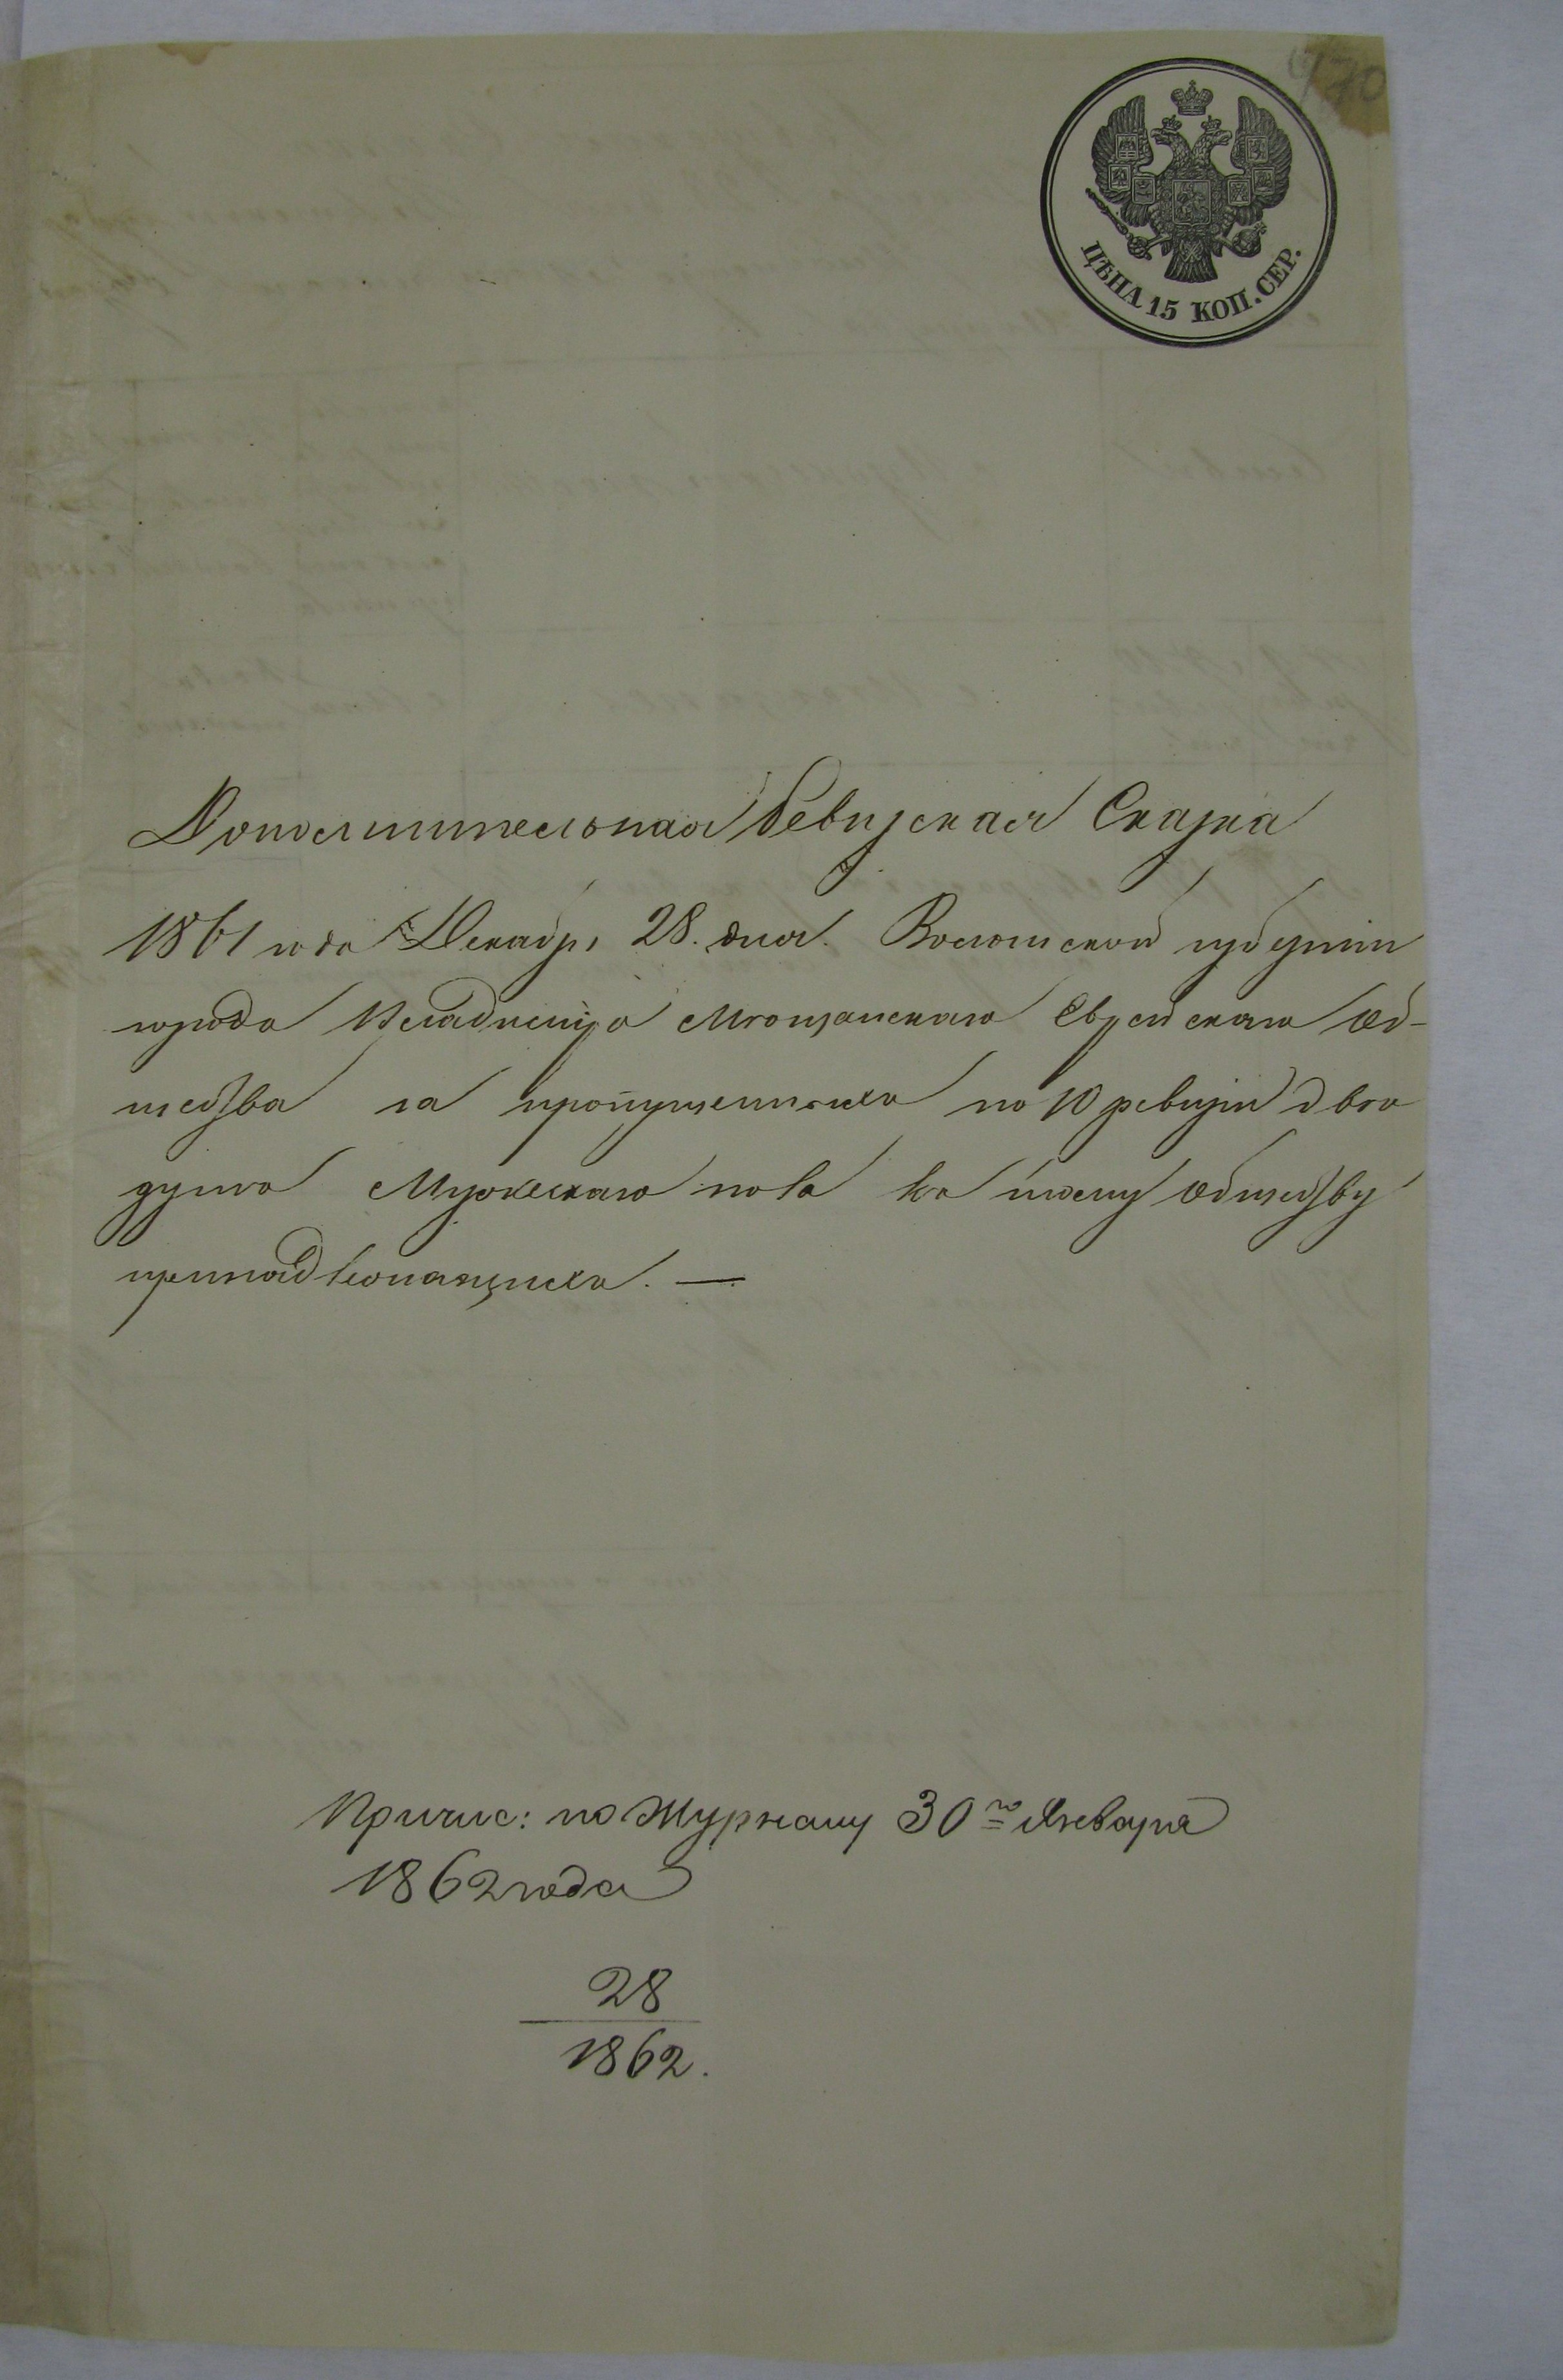 970
ЦѢНА 15 КОП. СЕР.
Дополнительная Ревизская Сказка
1861 года Декабря 28. дня. Волынской губерніи
города Мѣщанскаго Еврейскаго Об-
щества на пропущенныхъ по 10 ревизіи двѣ
души Мужескаго пола къ оному обществу
принадлежащихъ. —
Причис: по Журналу 30го Января
1862 года
28
1862.